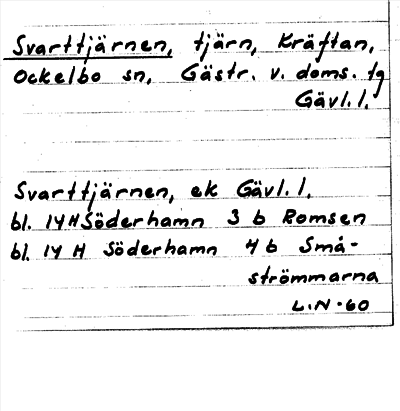 Svarttjärnen, tjärn, Kräftan,
Ockelbo sn, Gästr. v. doms. tg
Gävl.l.
Svarttjärnen, ek Gävl.l.
bl. 14H Söderhamn 3 b Romsen
bl. 14 H Söderhamn 4 b Små-
strömmarna
L.N.60